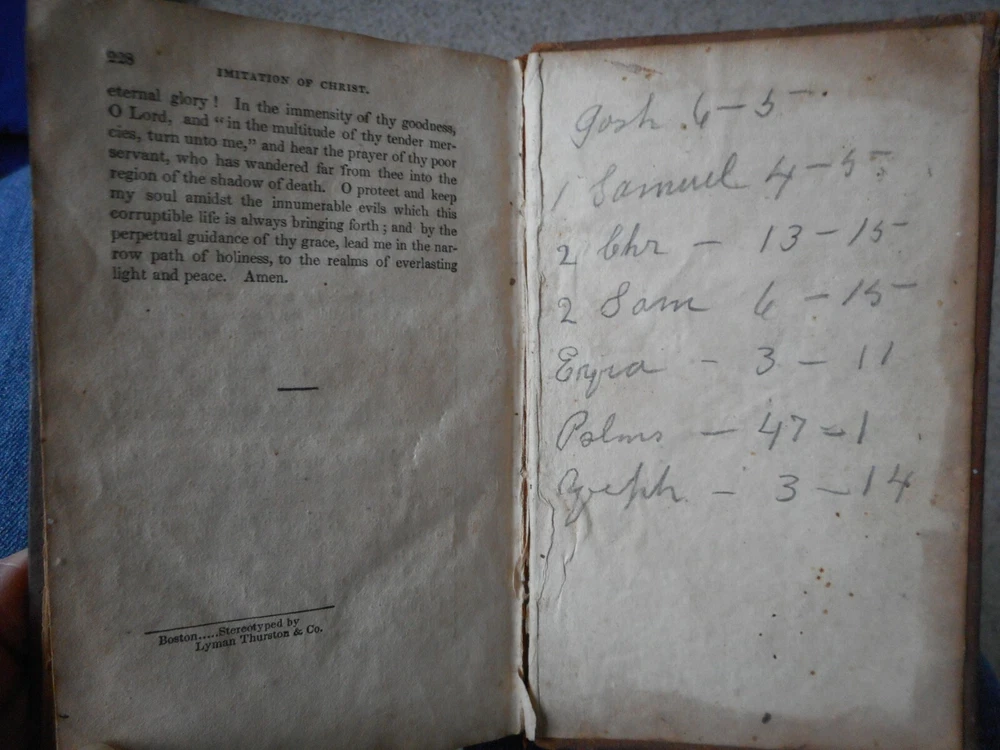 228
IMITATION OF CHRIST.
eternal glory! In the immensity of thy goodness,
O Lord, and “in the multitude of thy tender mer-
cies, turn unto me,” and hear the prayer of thy poor
servant, who has wandered far from thee into the
region of the shadow of death. O protect and keep
my soul amidst the innumerable evils which this
corruptible life is always bringing forth; and by the
perpetual guidance of thy grace, lead me in the nar-
row path of holiness, to the realms of everlasting
light and peace. Amen.
Boston.....Stereotyped by
Lyman Thurston & Co.
Josh 6 – 5
1 Samuel 4 – 5
2 Chr – 13 – 15
2 Sam 6 – 15
Ezra – 3 – 11
Psalms – 47 – 1
Zeph – 3 – 14